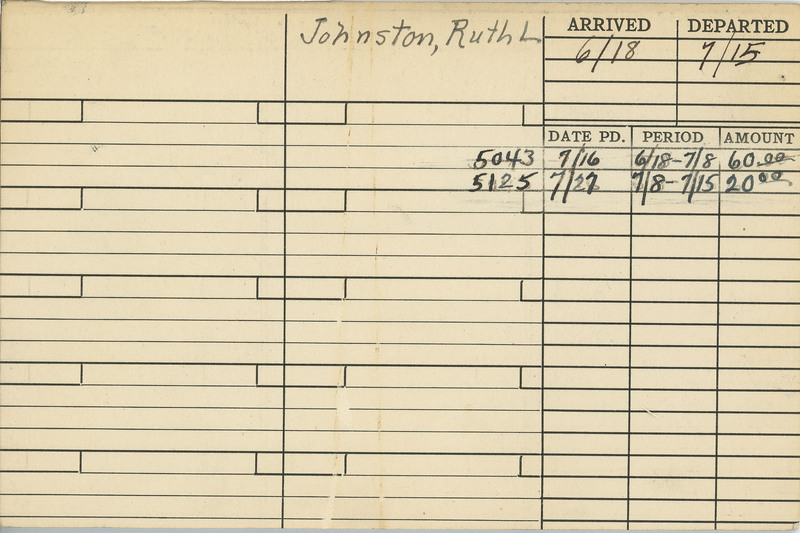 Johnston, Ruth L
ARRIVED DEPARTED
6/18 7/15
DATE PD. PERIOD AMOUNT
5043 7/16 6/18-7/8 60.00
5125 7/27 7/8-7/15 20.00